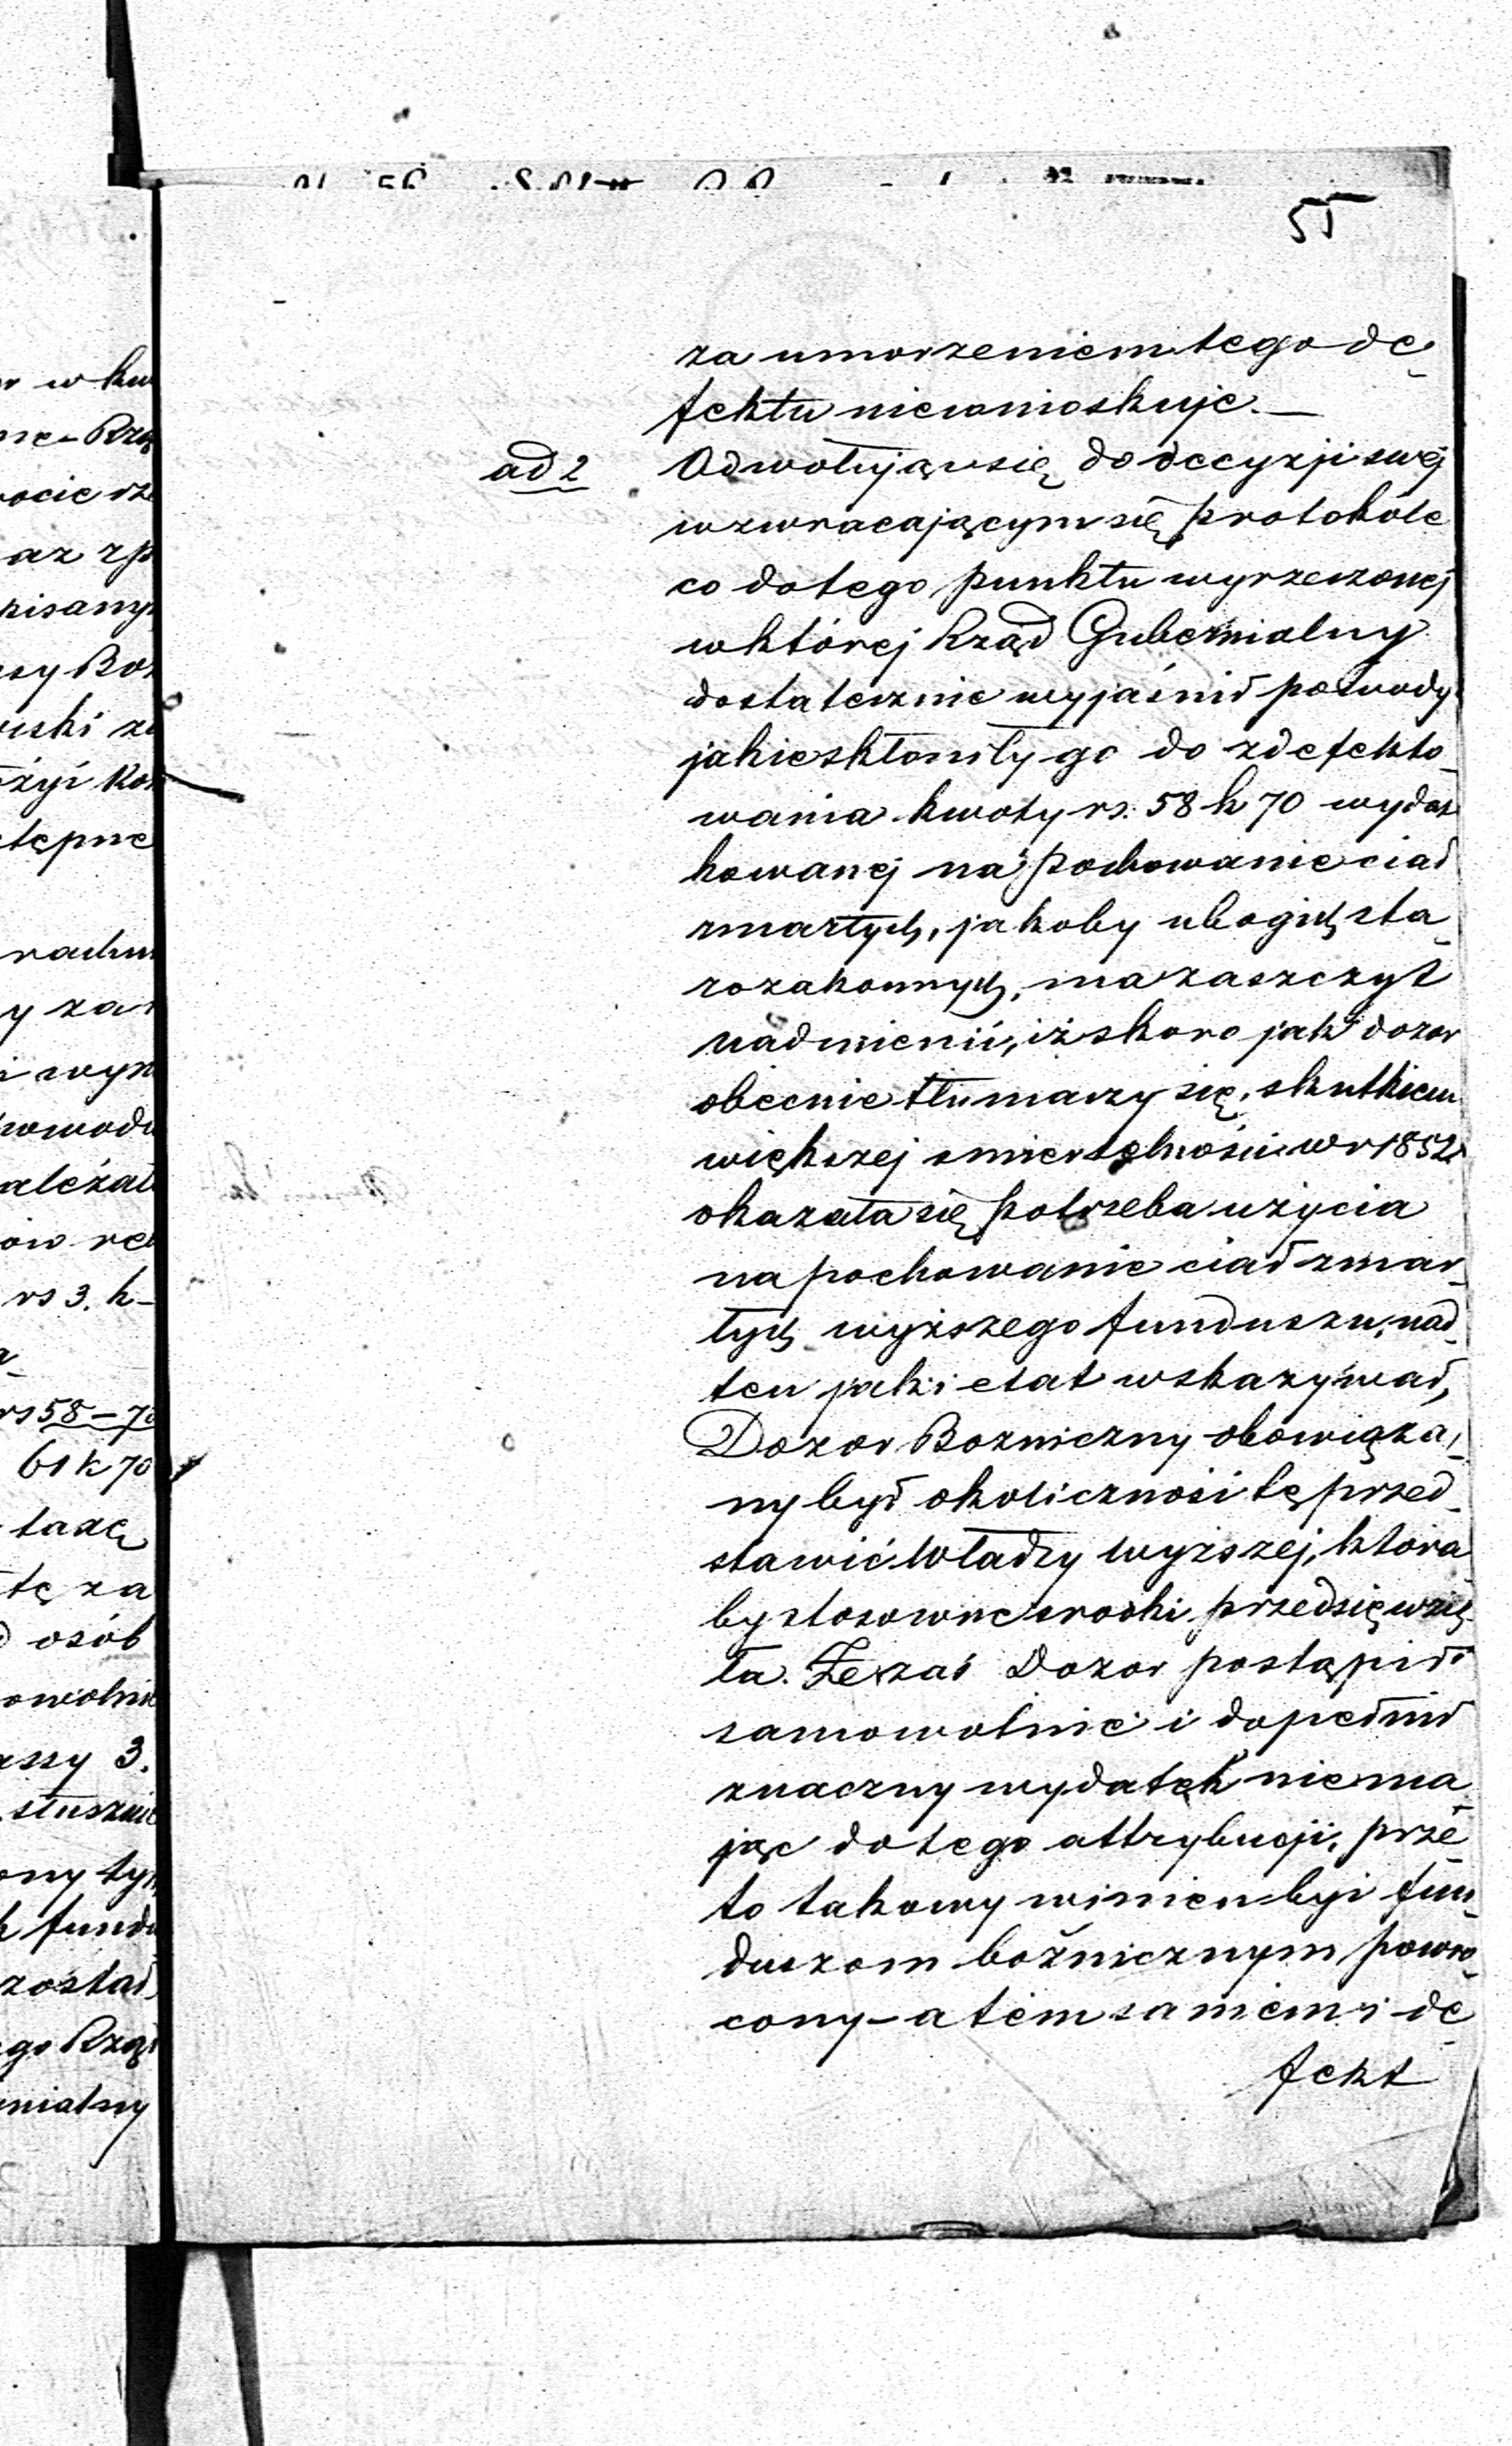 55
za umorzeniem tego de-
fektu niewnioskuje. —
ad 2 Odwołując się do decyzji swej
w zwracającym się protokóle
co do tego punktu wyrzeczonej
w której Rząd Gubernialny
dostatecznie wyjaśnił powody
jakie skłoniły go do zdefekto-
wania kwoty rs. 58 k 70 wydat-
kowanej na pochowanie ciał
zmarłych, jakoby ubogich sta-
rozakonnych, ma zaszczyt
nadmienić, iż skoro jak dozor
obecnie tłumaczy się, skutkiem
większej śmiertelności w r 1852
okazała się potrzeba użycia
na pochowanie ciał zmar-
łych wyższego funduszu, nad
ten jaki etat wskazywał,
Dozor Bozniczny obowiąza-
ny był okoliczność tę przed-
stawić Władzy wyższej, która
by stosowne srodki przedsięwzię-
ła. Że zaś Dozor postąpił
samowolnie i dopełnił
znaczny wydatek nie ma-
jąc do tego attrybucji, prze-
to takowy winien być fun-
duszom bóżnicznym powró-
cony – a tém samém i de-
fekt
w kw
Rzą
ocie
az zp
pisany
Boz
uski za
kos
stępne
rachun
y za
i wyn
owodu
ależał
ów
rs 3. k –
rs 58 – 70
61 k 70
taxę
tę za
osób
owolnie
assy 3.
słusznie
ony tym
k fundu
został
go Rząd
rnialny